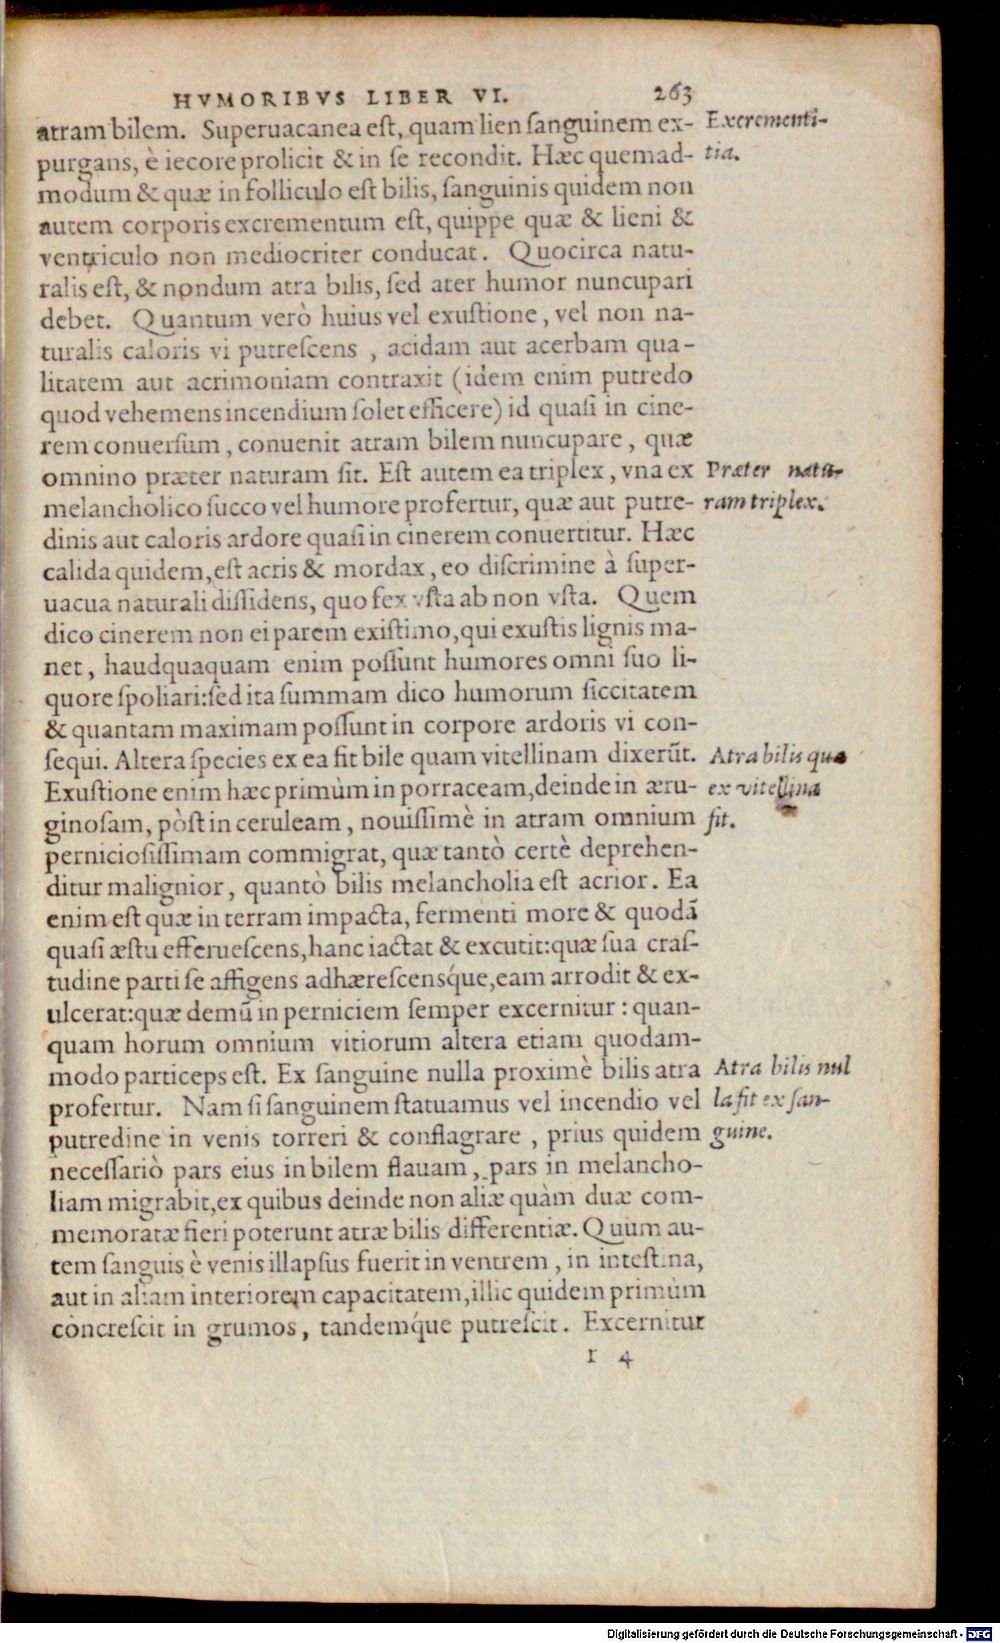 HVMORIBVS LIBER VI. 263
atram bilem. Superuacanea est, quam lien sanguinem ex-
purgans, è iecore prolicit & in se recondit. Hæc quemad-
modum & quæ in folliculo est bilis, sanguinis quidem non
autem corporis excrementum est, quippe quæ & lieni &
ventriculo non mediocriter conducat. Quocirca natu-
ralis est, & nondum atra bilis, sed ater humor nuncupari
debet. Quantum verò huius vel exustione, vel non na-
turalis caloris vi putrescens, acidam aut acerbam qua-
litatem aut acrimoniam contraxit (idem enim putredo
quod vehemens incendium solet efficere) id quasi in cine-
rem conuersum, conuenit atram bilem nuncupare, quæ
omnino præter naturam sit. Est autem ea triplex, vna ex
melancholico succo vel humore profertur, quæ aut putre-
dinis aut caloris ardore quasi in cinerem conuertitur. Hæc
calida quidem, est acris & mordax, eo discrimine à super-
uacua naturali dissidens, quo fex vsta ab non vsta. Quem
dico cinerem non ei parem existimo, qui exustis lignis ma-
net, haudquaquam enim possunt humores omni suo li-
quore spoliari: sed ita summam dico humorum siccitatem
& quantam maximam possunt in corpore ardoris vi con-
sequi. Altera species ex ea fit bile quam vitellinam dixerũt.
Exustione enim hæc primùm in porraceam, deinde in æru-
ginosam, pòst in ceruleam, nouissimè in atram omnium
perniciosissimam commigrat, quæ tantò certè deprehen-
ditur malignior, quantò bilis melancholia est acrior. Ea
enim est quæ in terram impacta, fermenti more & quodã
quasi æstu efferuescens, hanc iactat & excutit: quæ sua cras-
tudine parti se affigens adhærescensq́ue, eam arrodit & ex-
ulcerat: quæ demũ in perniciem semper excernitur: quan-
quam horum omnium vitiorum altera etiam quodam-
modo particeps est. Ex sanguine nulla proximè bilis atra
profertur. Nam si sanguinem statuamus vel incendio vel
putredine in venis torreri & conflagrare, prius quidem
necessariò pars eius in bilem flauam, pars in melancho-
liam migrabit, ex quibus deinde non aliæ quàm duæ com-
memoratæ fieri poterunt atræ bilis differentiæ. Quum au-
tem sanguis è venis illapsus fuerit in ventrem, in intestina,
aut in aliam interiorem capacitatem, illic quidem primùm
concrescit in grumos, tandemq́ue putrescit. Excernitur
I 4
Excrementi-
tia.
Præter natu-
ram triplex.
Atra bilis quæ
ex vitellina
fit.
Atra bilis nul
la fit ex san-
guine.
Digitalisierung gefördert durch die Deutsche Forschungsgemeinschaft - DFG